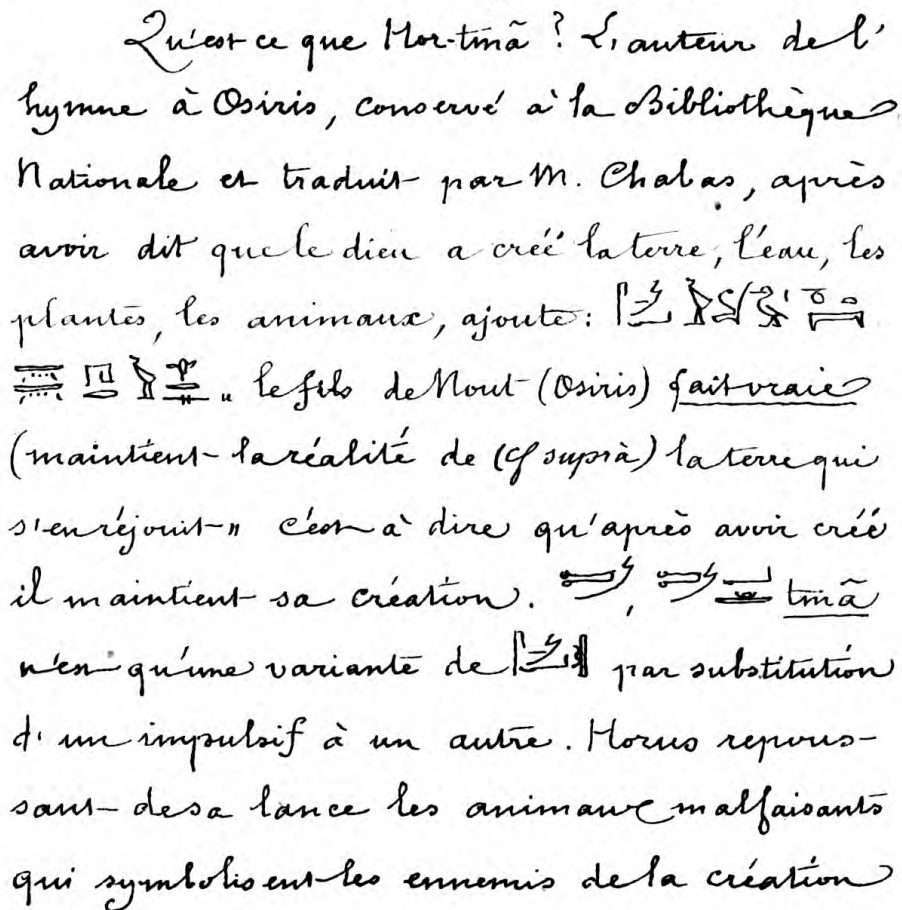 Qu'est ce que Hor-tmã ? L'auteur de l'
hymne à Osiris, conservé à la Bibliothèque
Nationale et traduit par M. Chabas, après
avoir dit que le dieu a créé la terre, l'eau, les
plantes, les animaux, ajoute :
„ le fils de Nout (Osiris) fait vraie
(maintient la réalité de (cf suprà) la terre qui
s'en réjouit „ c'est à dire qu'après avoir créé
il maintient sa création. , tmã
n'est qu'une variante de par substitution
d'un impulsif à un autre. Horus repous-
sant de sa lance les animaux malfaisants
qui symbolisent les ennemis de la création